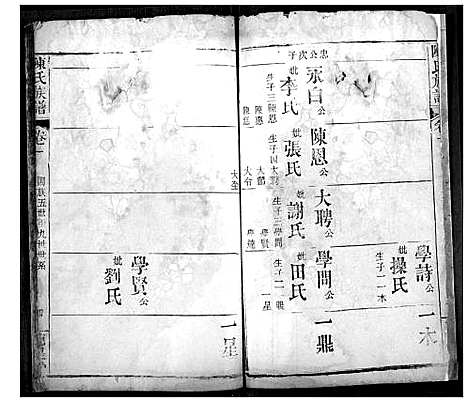 陳氏族譜
學詩公
妣操氏
生子一一木
一木
忠公次子
永白公
妣李氏
生子三陳恩
陳惠
陳忠
陳恩公
妣張氏
生子四大聘
大爵
大全
大聘公
妣謝氏
生子三學問
學賢
學問公
妣田氏
生子二一鼎
一星
一鼎
學賢公
妣劉氏
一星
陳氏族譜
卷二